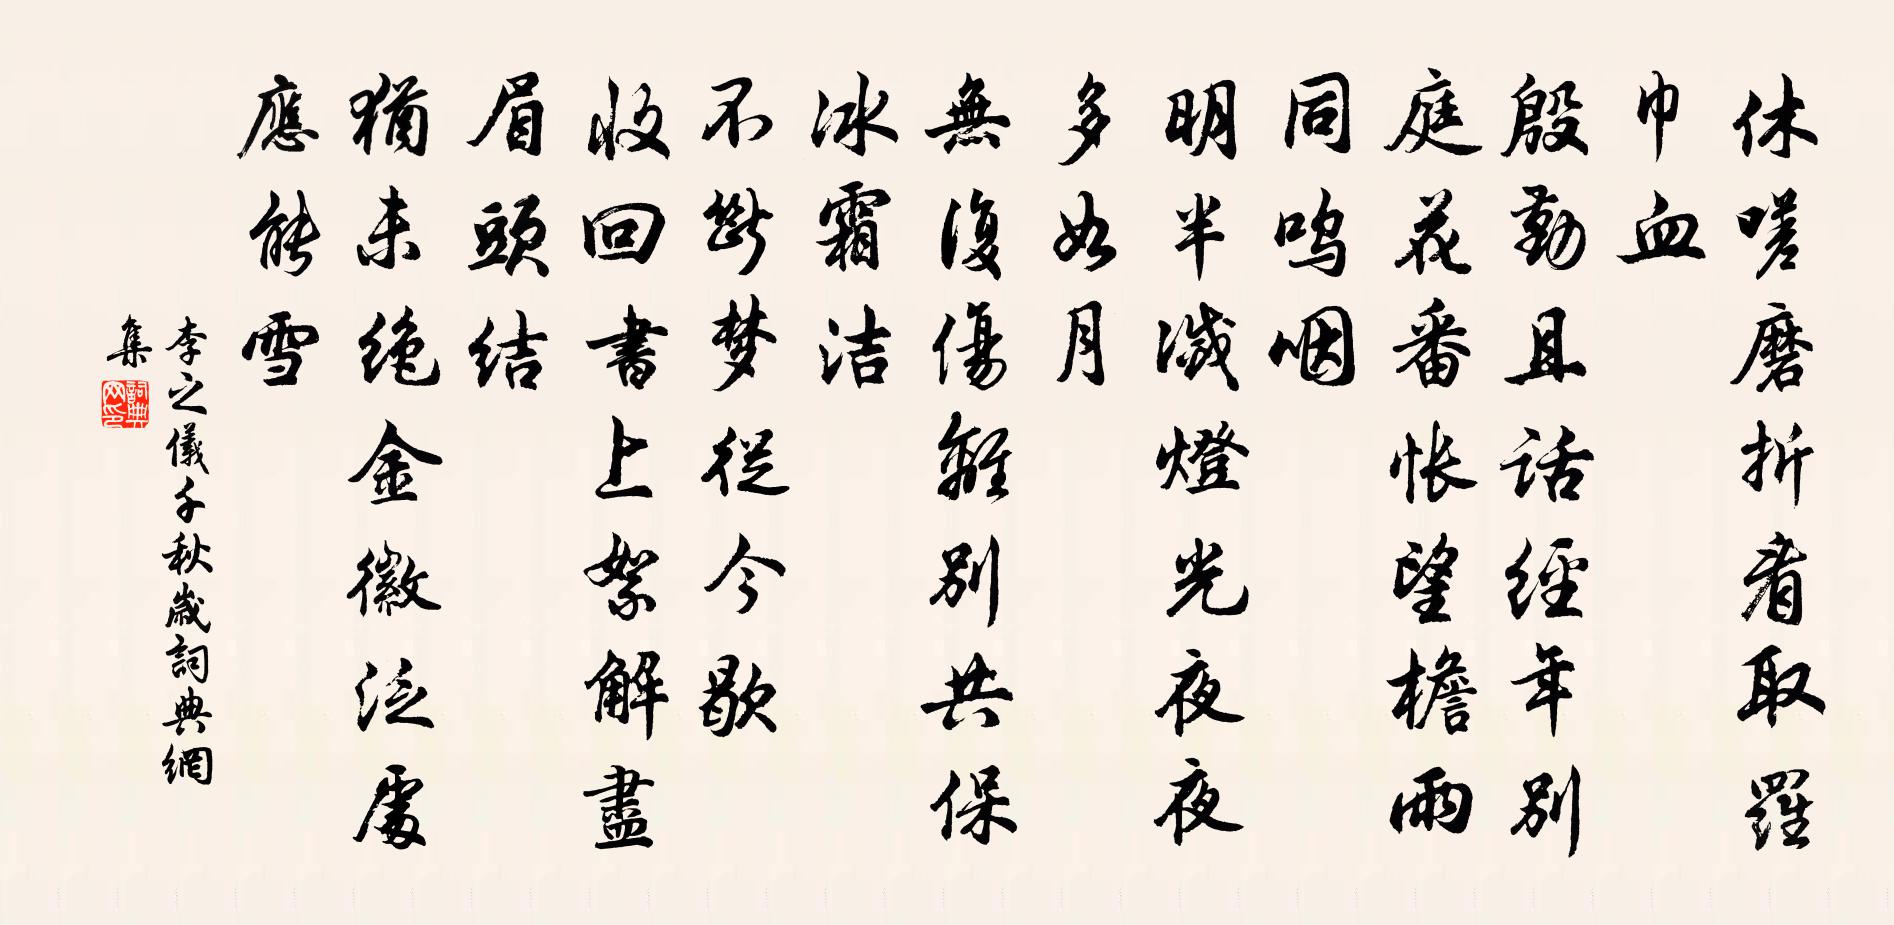 休嗟磨折看取羅
巾血
殷勤且話經年別
庭花番悵望檐雨
同鸣咽
明半滅燈光夜夜
多如月
無復傷離別共保
冰霜洁
不斷梦從今歇
收回書上絮解盡
眉頭结
猶未絶金徽泛處
應能雪
李之儀千秋歲詞典網
集
詞典网印